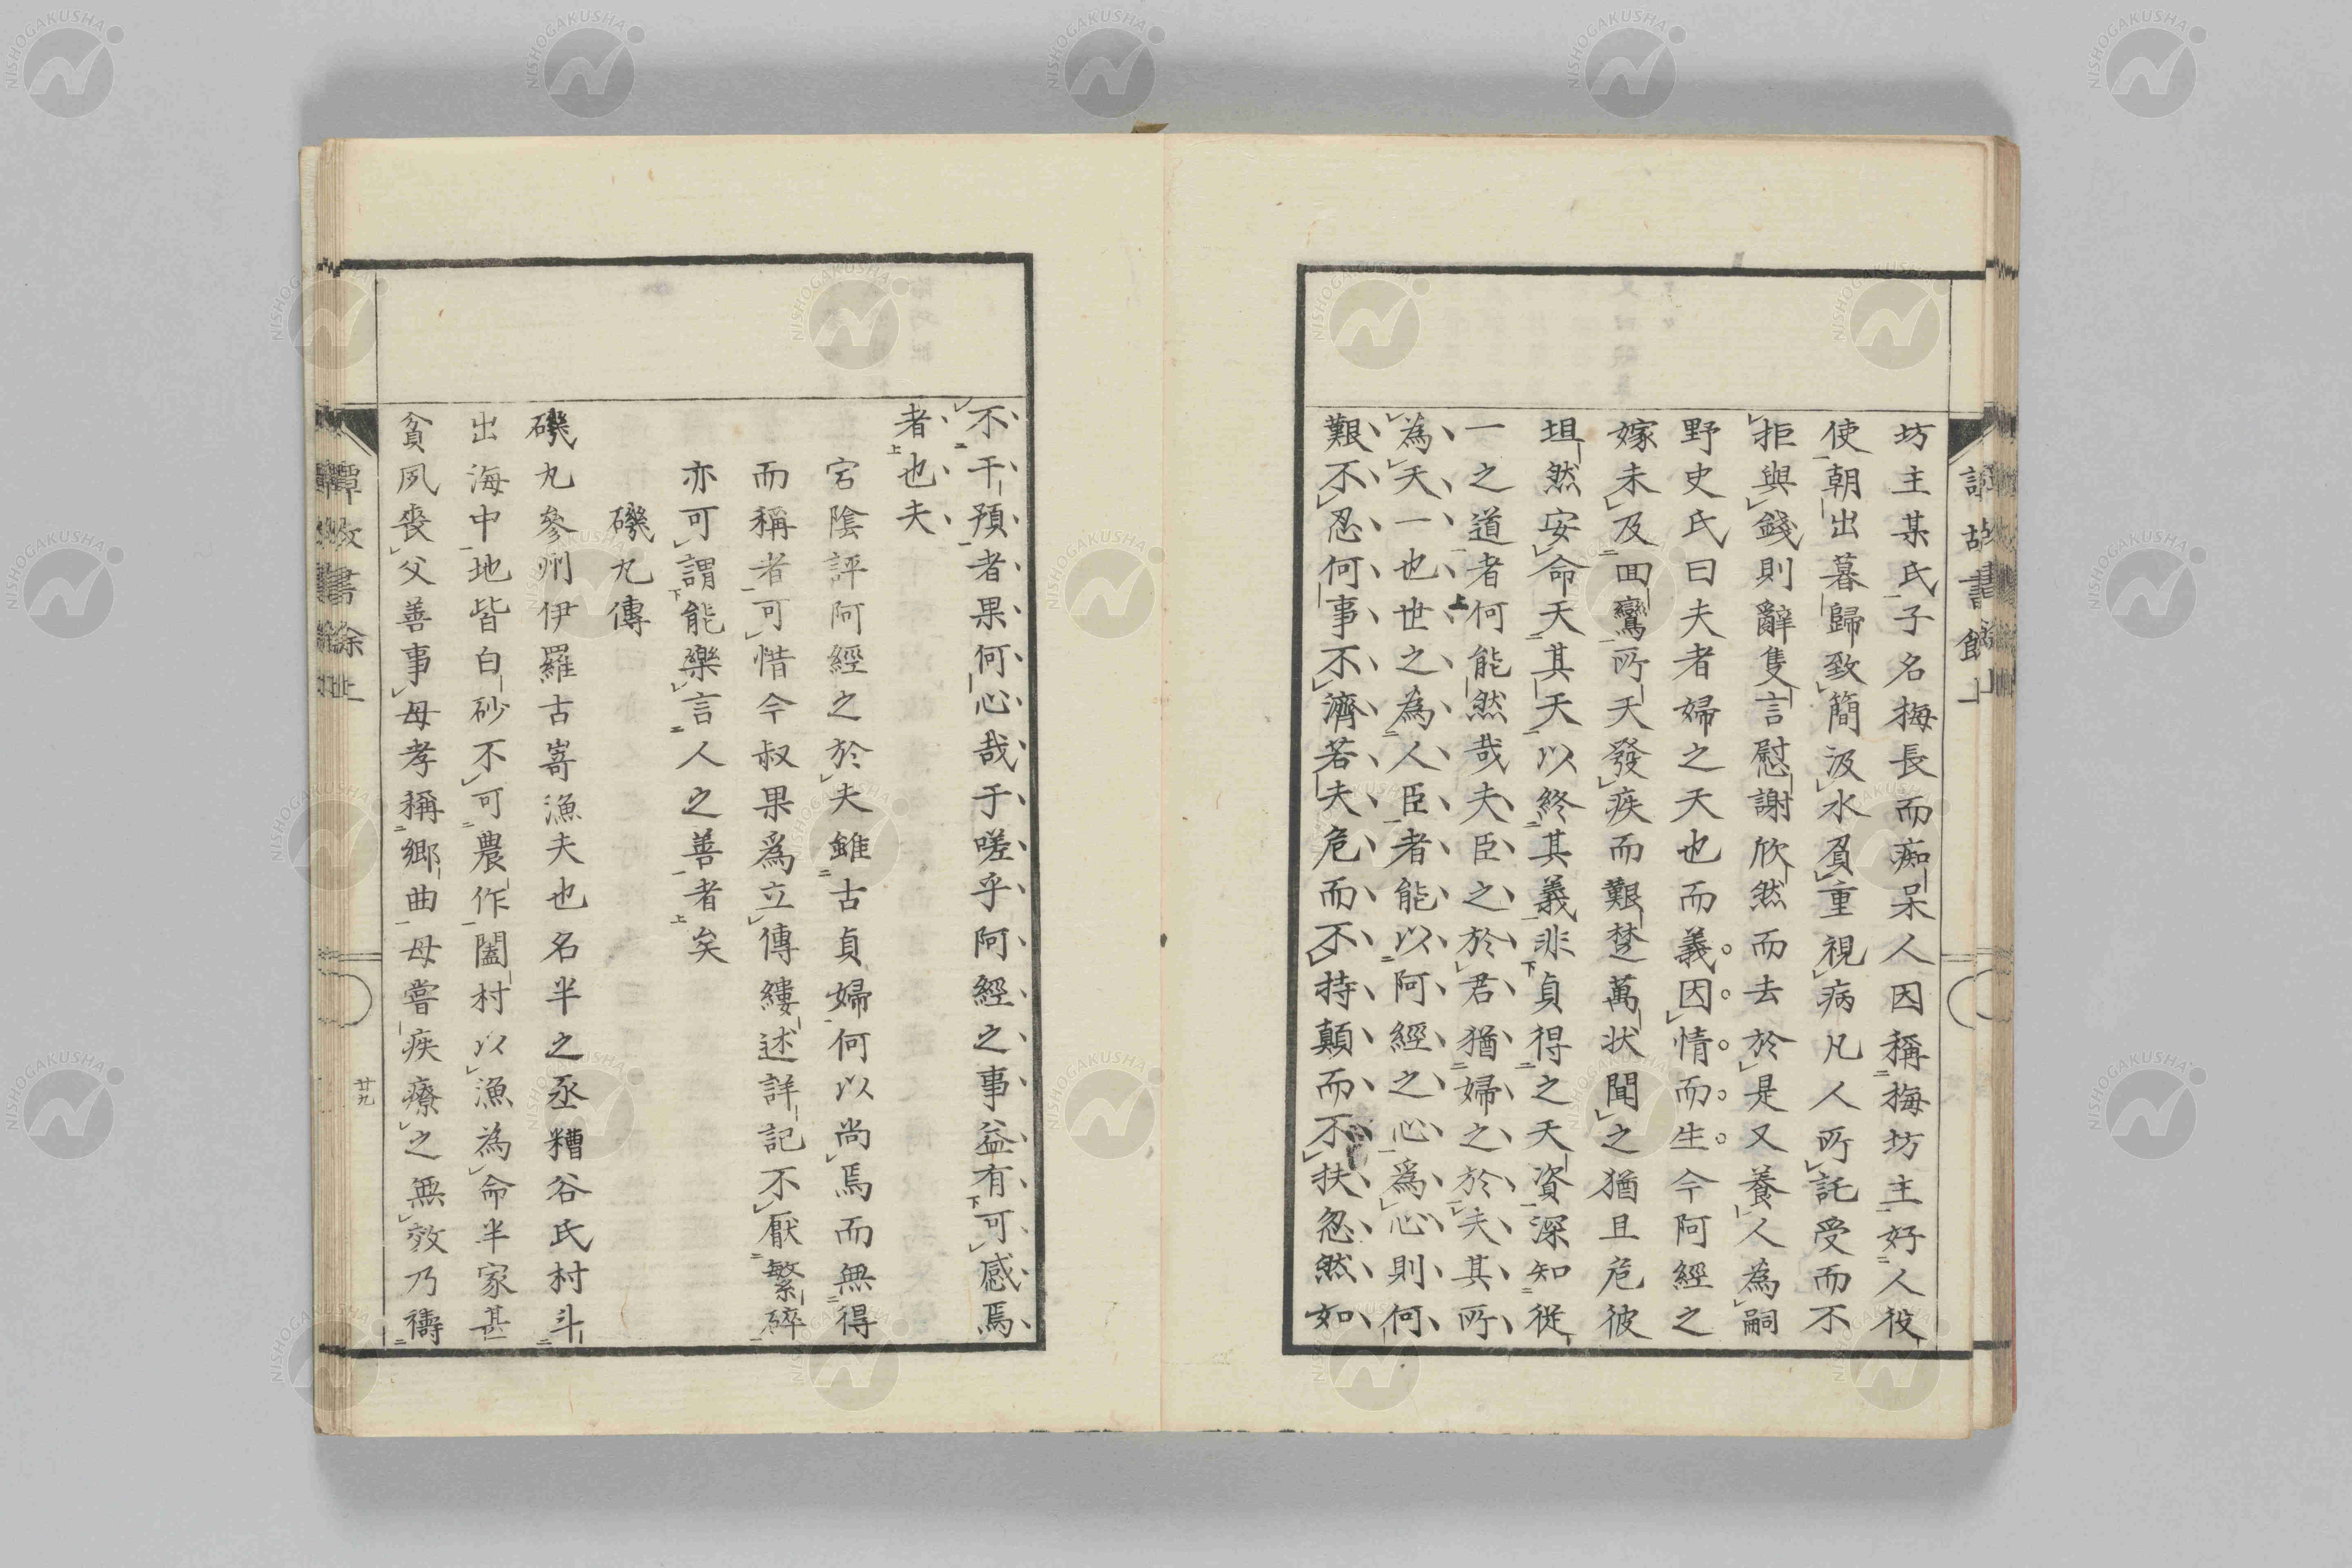 坊主某氏子名梅長而痴呆人因稱梅坊主好人役
使朝出暮歸致簡汲水負重視病凡人所託受而不
拒與錢則辭隻言慰謝欣然而去於是又養人為嗣
野史氏曰夫者婦之天也而義因情而生今阿經之
嫁未及回鸞所天發疾而艱楚萬状聞之猶且危彼
坦然安命天其天以終其義非貞得之天資深知從
一之道者何能然哉夫臣之於君猶婦之於夫其所
為天一也世之為人臣者能以阿經之心爲心則何
艱不忍何事不濟若夫危而不持顛而不扶忽然如
不干預者果何心哉于嗟乎阿經之事益有可感焉
者也夫
宕陰評阿經之於夫雖古貞婦何以尚焉而無得
而稱者可惜今叔果爲立傳縷述詳記不厭繁碎
亦可謂能樂言人之善者矣
磯九傳
磯九參州伊羅古嵜漁夫也名半之丞糟谷氏村斗
出海中地皆白砂不可農作闔村以漁為命半家甚
貧夙喪父善事母孝稱鄉曲母嘗疾療之無效乃禱
廿九
NISHOGAKUSHA